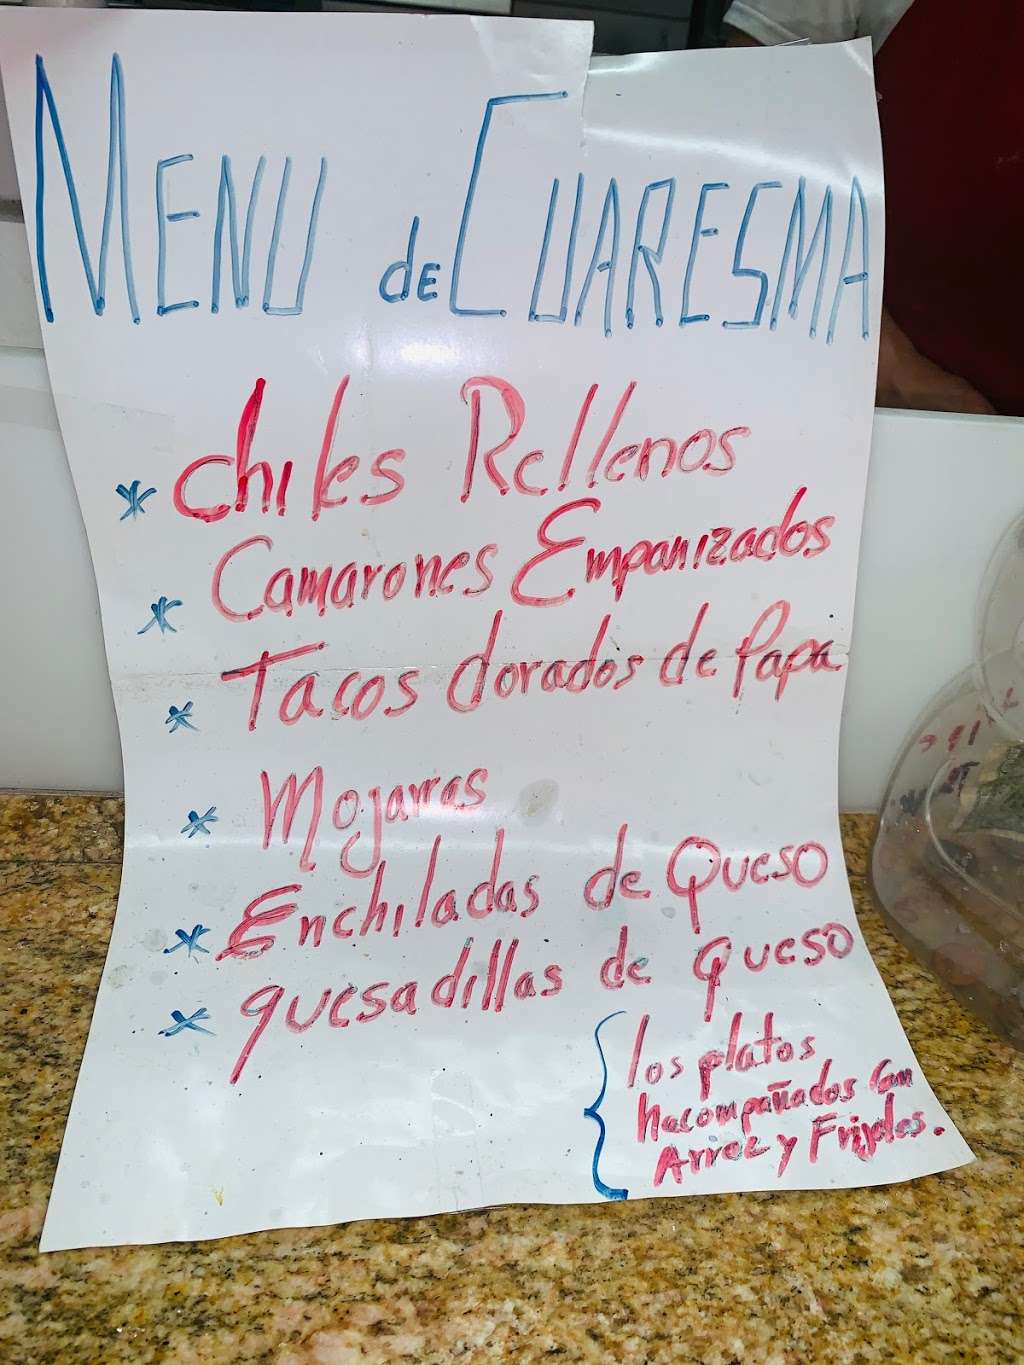 MENU de CUARESMA
* chiles Rellenos
* Camarones Empanizados
* Tacos dorados de Papa
* Mojarras
* Enchiladas de Queso
* quesadillas de queso
{ los platos
hacompañados Con
Arroz y Frijoles.